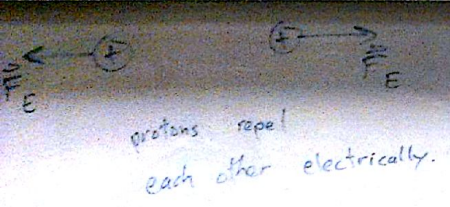 + +
F⃗E F⃗E
protons repel
each other electrically.